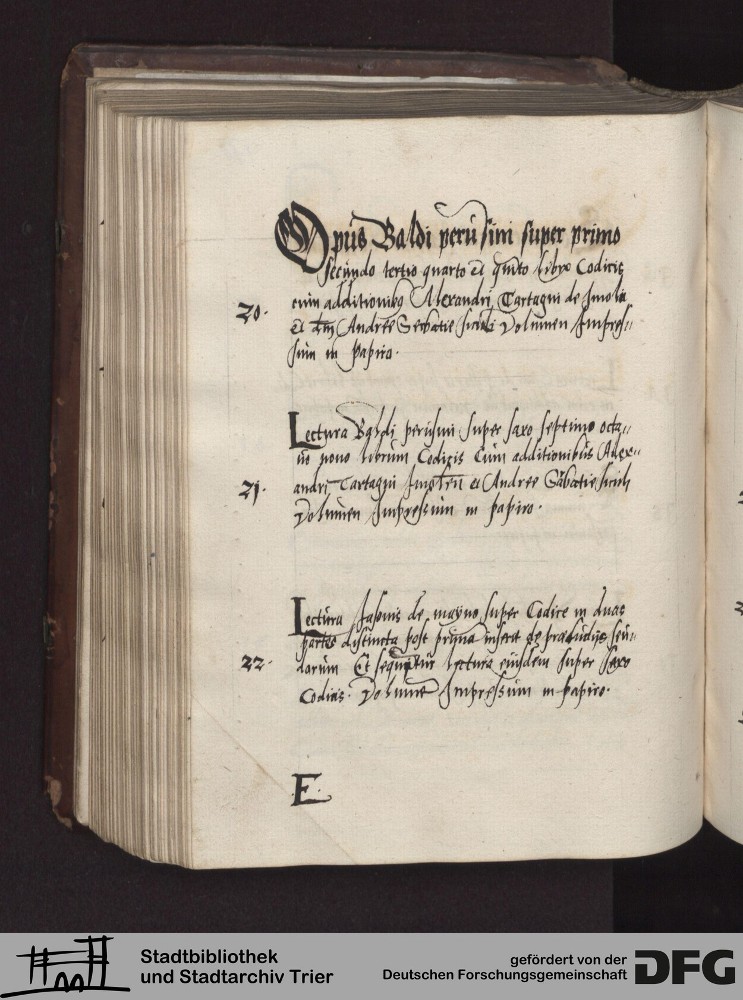 Opus Baldi perusini super primo
secundo tertio quarto et quinto libro Codicis
20. cum additionibus Alexandri Tartagni de Imola
et Andree Siculi Volumen Impres-
sum in papiro.
Lectura Baldi perusini super sexto septimo octa-
uo nono librum Codicis Cum additionibus Alex-
21. andri Tartagni Imolen et Andree Siculi
Volumen Impressum in papiro.
Lectura Jasonis de mayno super Codice in duas
partes distincta post prima inserit de feu-
22. dorum Et sequitur lectura eiusdem super sexto
Codicis. Volumen Impressum in papiro.
E.
Stadtbibliothek
und Stadtarchiv Trier
gefördert von der
Deutschen Forschungsgemeinschaft
DFG